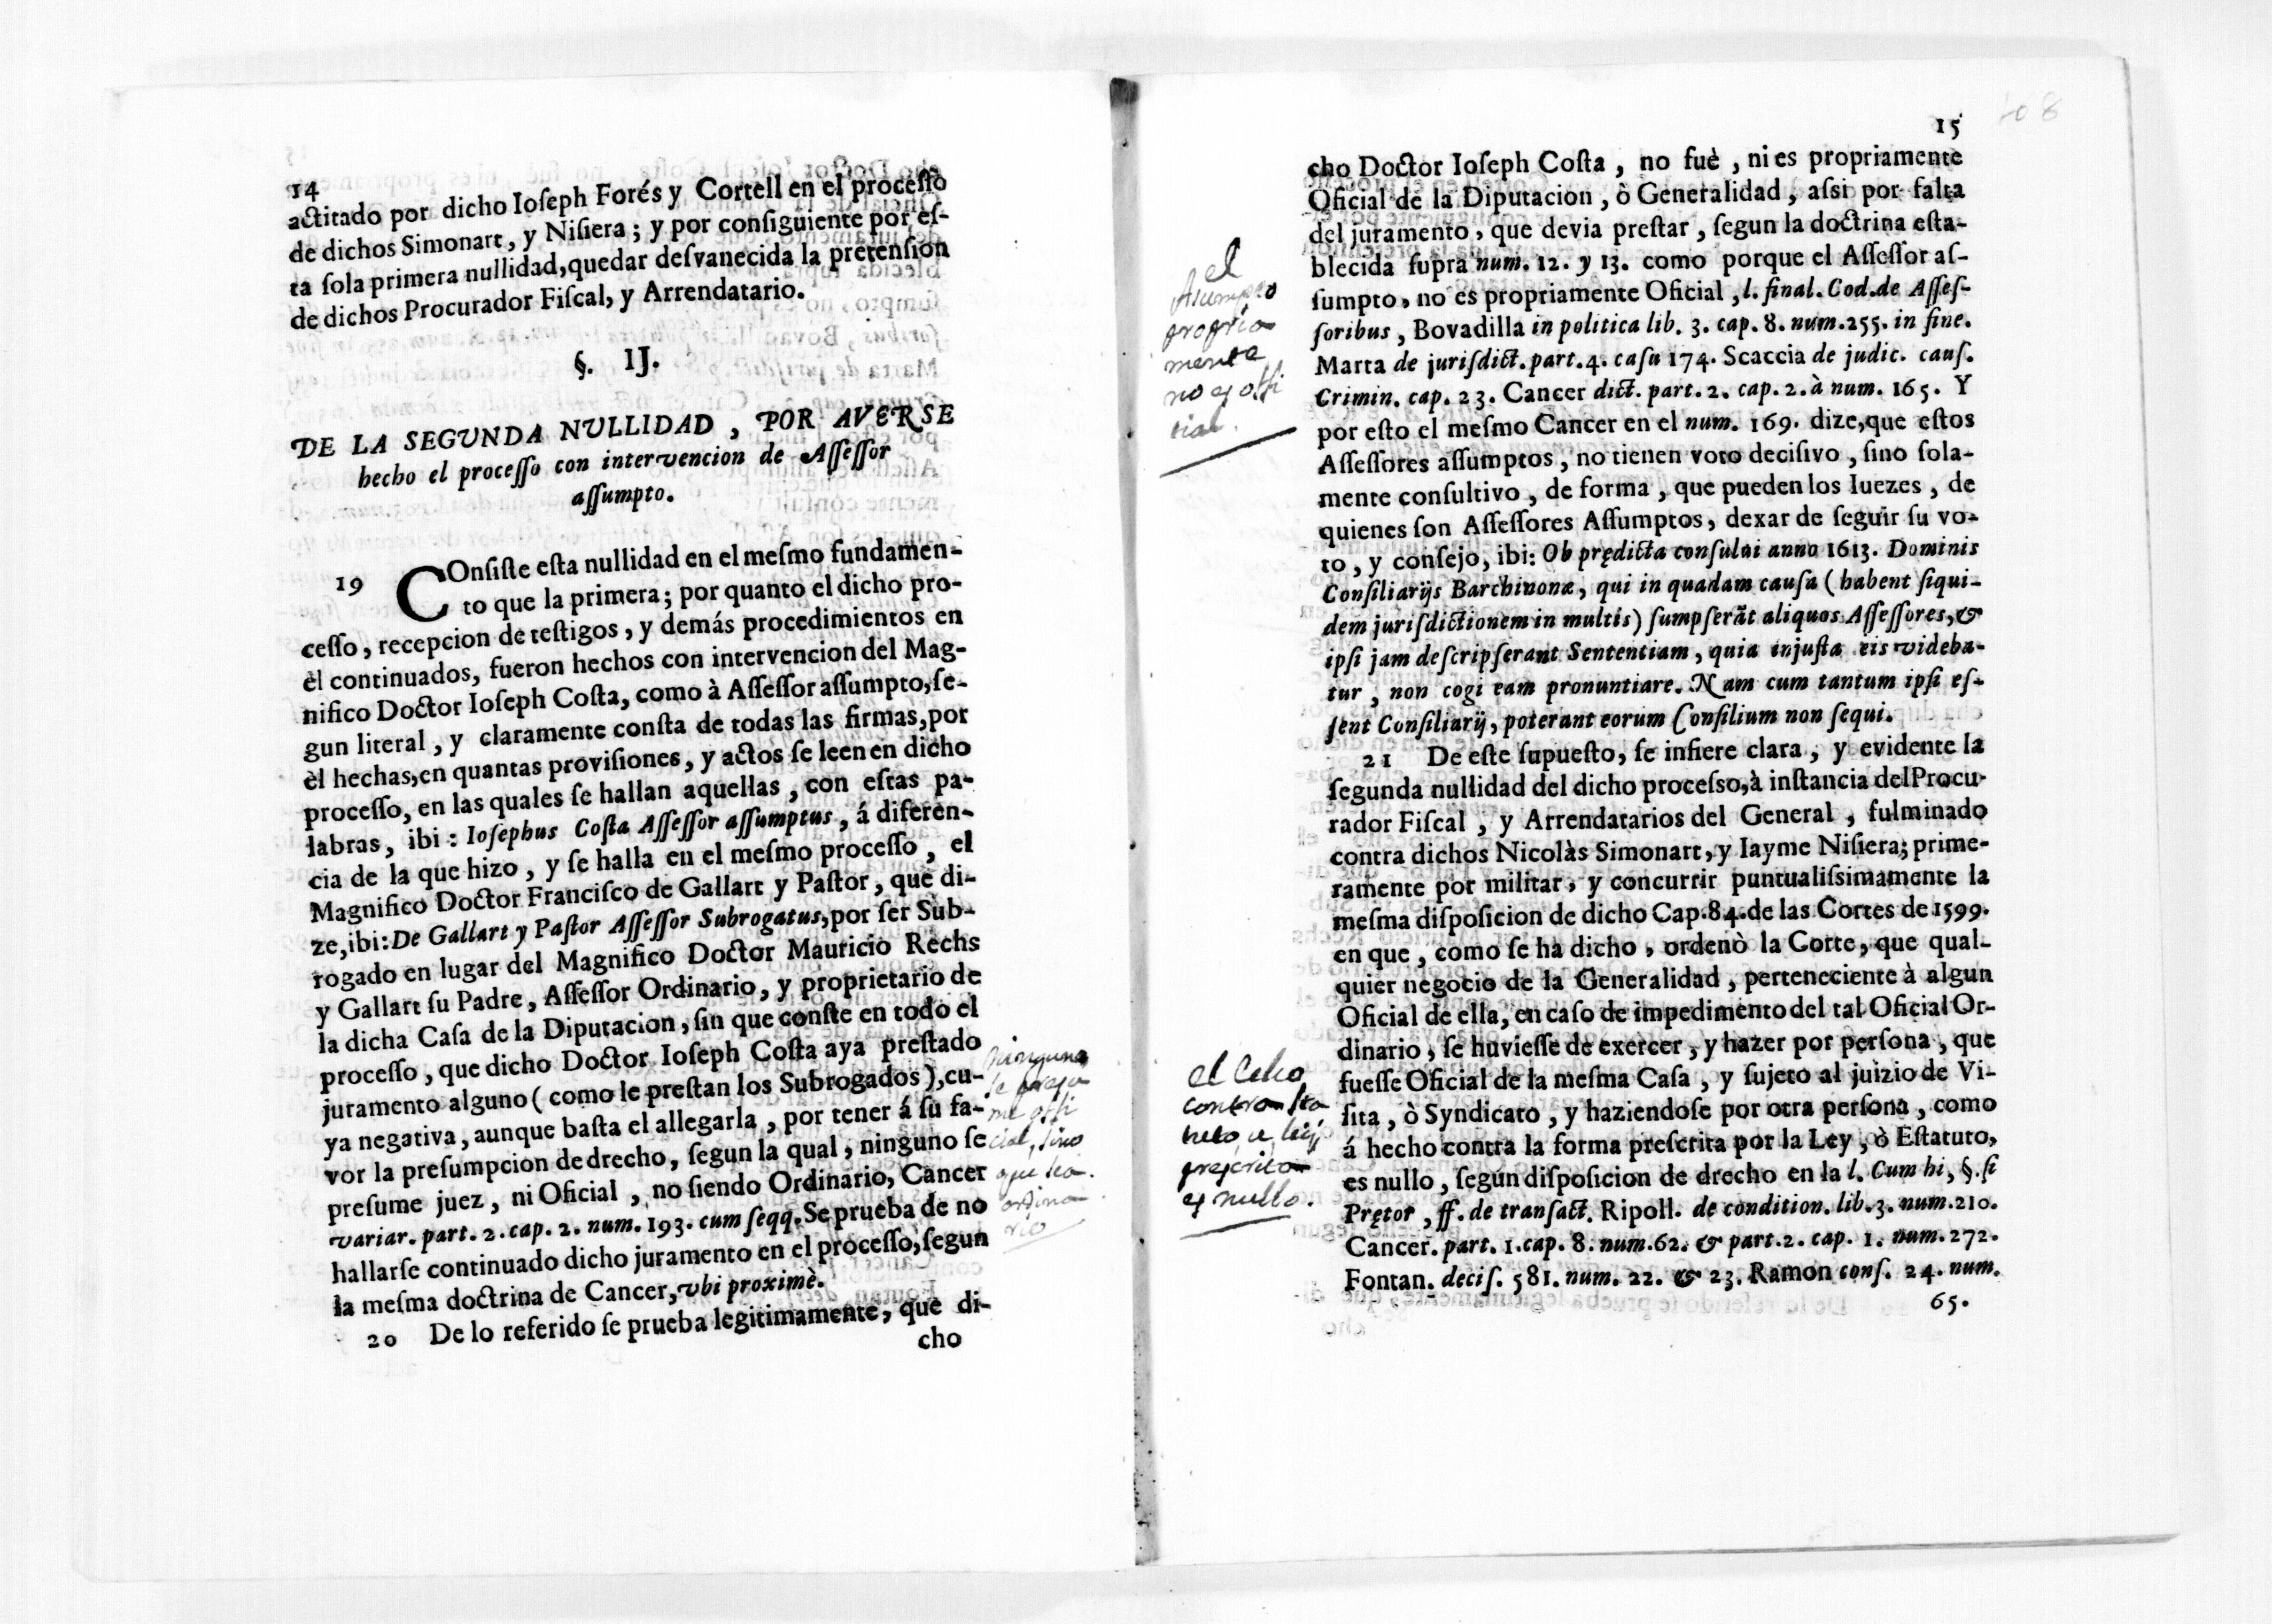 14
actitado por dicho Ioſeph Forés y Cortell en el proceſſo
de dichos Simonart, y Niſiera; y por conſiguiente por eſ-
ta ſola primera nullidad, quedar deſvanecida la pretenſion
de dichos Procurador Fiſcal, y Arrendatario.
§. IJ.
DE LA SEGVNDA NVLLIDAD, POR AVERSE
hecho el proceſſo con intervencion de Aſſeſſor
aſſumpto.
19 COnſiſte eſta nullidad en el meſmo fundamen-
to que la primera; por quanto el dicho pro-
ceſſo, recepcion de teſtigos, y demás procedimientos en
èl continuados, fueron hechos con intervencion del Mag-
nifico Doctor Ioſeph Coſta, como à Aſſeſſor aſſumpto, ſe-
gun literal, y claramente conſta de todas las firmas, por
èl hechas, en quantas proviſiones, y actos ſe leen en dicho
proceſſo, en las quales ſe hallan aquellas, con eſtas pa-
labras, ibi: Ioſephus Coſta Aſſeſſor aſſumptus, á diferen-
cia de la que hizo, y ſe halla en el meſmo proceſſo, el
Magnifico Doctor Franciſco de Gallart y Paſtor, que di-
ze, ibi: De Gallart y Paſtor Aſſeſſor Subrogatus, por ſer Sub-
rogado en lugar del Magnifico Doctor Mauricio Rechs
y Gallart ſu Padre, Aſſeſſor Ordinario, y proprietario de
la dicha Caſa de la Diputacion, ſin que conſte en todo el
proceſſo, que dicho Doctor Ioſeph Coſta aya preſtado
juramento alguno (como le preſtan los Subrogados), cu-
ya negativa, aunque baſta el allegarla, por tener á ſu fa-
vor la preſumpcion de drecho, ſegun la qual, ninguno ſe
preſume juez, ni Oficial, no ſiendo Ordinario, Cancer
variar. part. 2. cap. 2. num. 193. cum ſeqq. Se prueba de no
hallarſe continuado dicho juramento en el proceſſo, ſegun
la meſma doctrina de Cancer, vbi proximè.
20 De lo referido ſe prueba legitimamente, que di-
cho
ninguno
ſe preſu
me offi
cial, ſino
que ſea
ordina
rio
408
15
cho Doctor Ioſeph Coſta, no fuè, ni es propriamente
Oficial de la Diputacion, ò Generalidad, aſsi por falta
del juramento, que devia preſtar, ſegun la doctrina eſta-
blecida ſupra num. 12. y 13. como porque el Aſſeſſor aſ-
ſumpto, no es propriamente Oficial, l. final. Cod. de Aſſeſ-
ſoribus, Bovadilla in politica lib. 3. cap. 8. num. 255. in fine.
Marta de juriſdict. part. 4. caſu 174. Scaccia de judic. cauſ.
Crimin. cap. 23. Cancer dict. part. 2. cap. 2. à num. 165. Y
por eſto el meſmo Cancer en el num. 169. dize, que eſtos
Aſſeſſores aſſumptos, no tienen voto deciſivo, ſino ſola-
mente conſultivo, de forma, que pueden los Iuezes, de
quienes ſon Aſſeſſores Aſſumptos, dexar de ſeguir ſu vo-
to, y conſejo, ibi: Ob prędicta conſului anno 1613. Dominis
Conſiliarijs Barchinonæ, qui in quadam cauſa (habent ſiqui-
dem juriſdictionem in multis) ſumpſerãt aliquos Aſſeſſores, &
ipſi jam deſcripſerant Sententiam, quia injuſta eis videba-
tur, non cogi eam pronuntiare. Nam cum tantum ipſi eſ-
ſent Conſiliarij, poterant eorum Conſilium non ſequi.
21 De eſte ſupueſto, ſe infiere clara, y evidente la
ſegunda nullidad del dicho proceſso, à inſtancia del Procu-
rador Fiſcal, y Arrendatarios del General, fulminado
contra dichos Nicolàs Simonart, y Iayme Niſiera; prime-
ramente por militar, y concurrir puntualiſsimamente la
meſma diſpoſicion de dicho Cap. 84. de las Cortes de 1599.
en que, como ſe ha dicho, ordenò la Corte, que qual-
quier negocio de la Generalidad, perteneciente à algun
Oficial de ella, en caſo de impedimento del tal Oficial Or-
dinario, ſe huvieſſe de exercer, y hazer por perſona, que
fueſſe Oficial de la meſma Caſa, y ſujeto al juizio de Vi-
ſita, ò Syndicato, y haziendoſe por otra perſona, como
á hecho contra la forma preſcrita por la Ley, ò Eſtatuto,
es nullo, ſegun diſpoſicion de drecho en la l. Cum hi, §. ſi
Prętor, ff. de tranſact. Ripoll. de condition. lib. 3. num. 210.
Cancer. part. 1. cap. 8. num. 62. & part. 2. cap. 1. num. 272.
Fontan. deciſ. 581. num. 22. & 23. Ramon conſ. 24. num.
65.
el
Asumpto
propria
mente
no es offi
cial.
el
contra
preſcrito
es nullo.